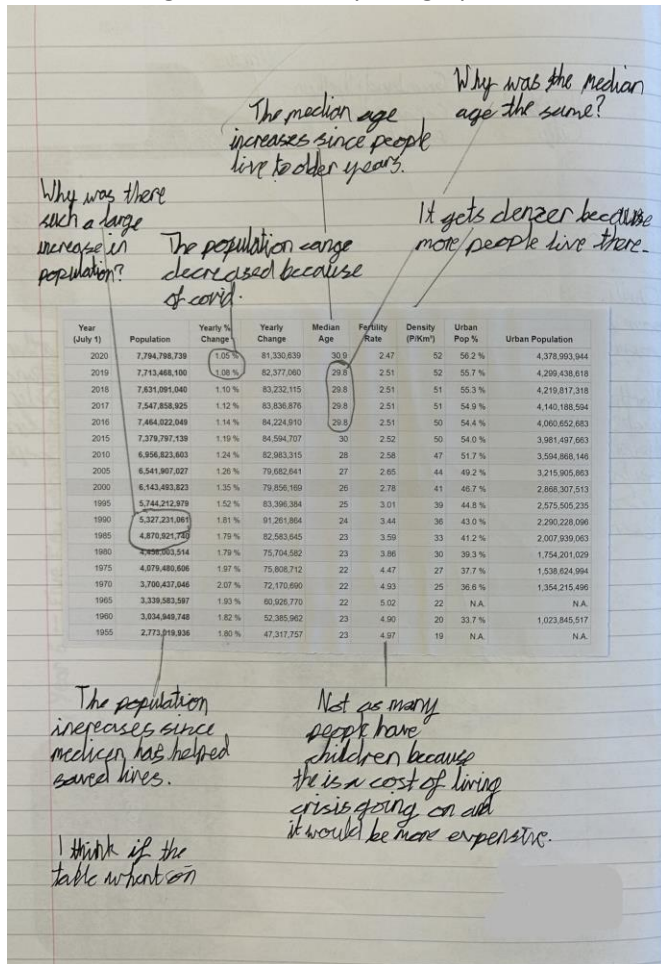 Why was the median
age the same?
The median age
increases since people
live to older years.
Why was there
such a large
increase in
population?
It gets denzer because
more people live there.
The population cange
decreased because
of covid.
Year (July 1) Population Yearly % Change Yearly Change Median Age Fertility Rate Density (P/Km²) Urban Pop % Urban Population
2020 7,794,798,739 1.05 % 81,330,639 30.9 2.47 52 56.2 % 4,378,993,944
2019 7,713,468,100 1.08 % 82,377,060 29.8 2.51 52 55.7 % 4,299,438,618
2018 7,631,091,040 1.10 % 83,232,115 29.8 2.51 51 55.3 % 4,219,817,318
2017 7,547,858,925 1.12 % 83,836,876 29.8 2.51 51 54.9 % 4,140,188,594
2016 7,464,022,049 1.14 % 84,224,910 29.8 2.51 50 54.4 % 4,060,652,683
2015 7,379,797,139 1.19 % 84,594,707 30 2.52 50 54.0 % 3,981,497,663
2010 6,956,823,603 1.24 % 82,983,315 28 2.58 47 51.7 % 3,594,868,146
2005 6,541,907,027 1.26 % 79,682,641 27 2.65 44 49.2 % 3,215,905,863
2000 6,143,493,823 1.35 % 79,856,169 26 2.78 41 46.7 % 2,868,307,513
1995 5,744,212,979 1.52 % 83,396,384 25 3.01 39 44.8 % 2,575,505,235
1990 5,327,231,061 1.81 % 91,261,864 24 3.44 36 43.0 % 2,290,228,096
1985 4,870,921,740 1.79 % 82,583,645 23 3.59 33 41.2 % 2,007,939,063
1980 4,458,003,514 1.79 % 75,704,582 23 3.86 30 39.3 % 1,754,201,029
1975 4,079,480,606 1.97 % 75,808,712 22 4.47 27 37.7 % 1,538,624,994
1970 3,700,437,046 2.07 % 72,170,690 22 4.93 25 36.6 % 1,354,215,496
1965 3,339,583,597 1.93 % 60,926,770 22 5.02 22 N.A. N.A.
1960 3,034,949,748 1.82 % 52,385,962 23 4.90 20 33.7 % 1,023,845,517
1955 2,773,019,936 1.80 % 47,317,757 23 4.97 19 N.A. N.A.
The population
increases since
medicen has helped
saved lives.
Not as many
people have
children because
the is a cost of living
crisis going on and
it would be more expensive.
I think if the
table whent on